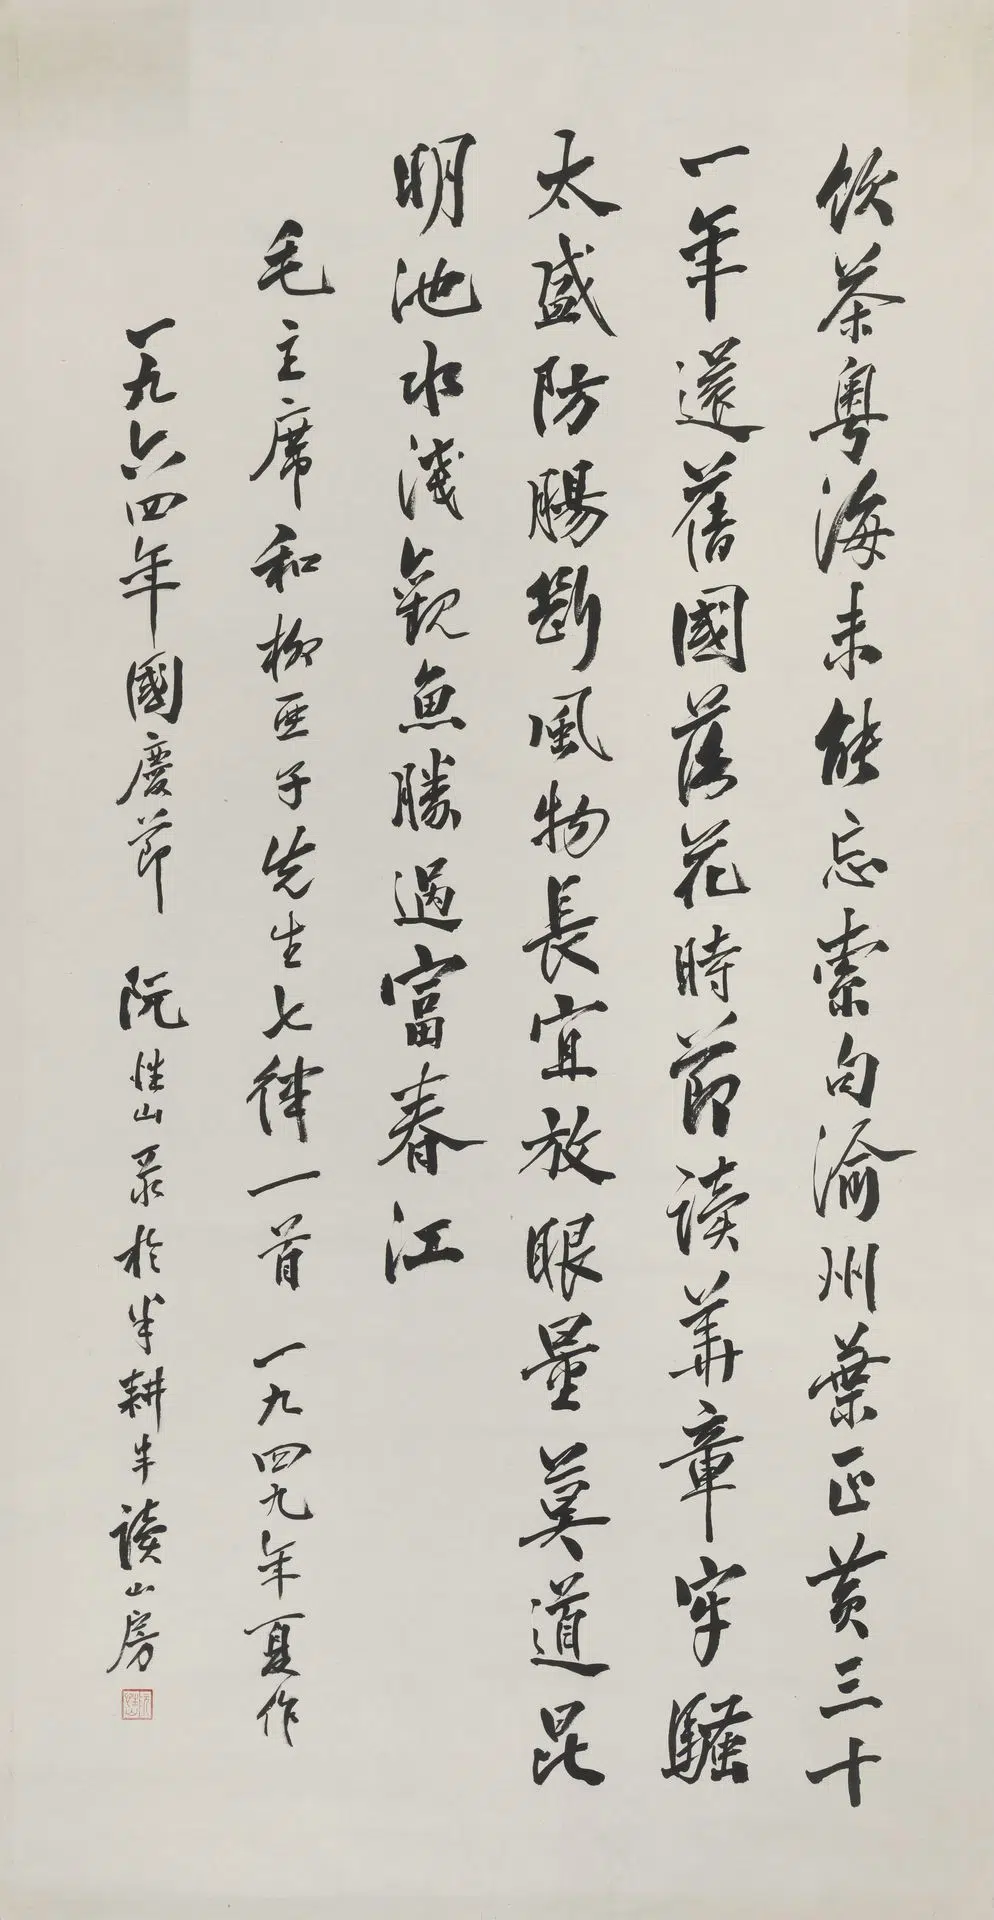 飲茶粵海未能忘索句渝州葉正黃三十
一年還舊國落花時節读華章牢騷
太盛防腸斷風物長宜放眼量莫道昆
明池水淺觀魚勝過富春江
毛主席和柳亞子先生七律一首 一九四九年夏作
一九六四年國慶節 阮性山录於半耕半读山房